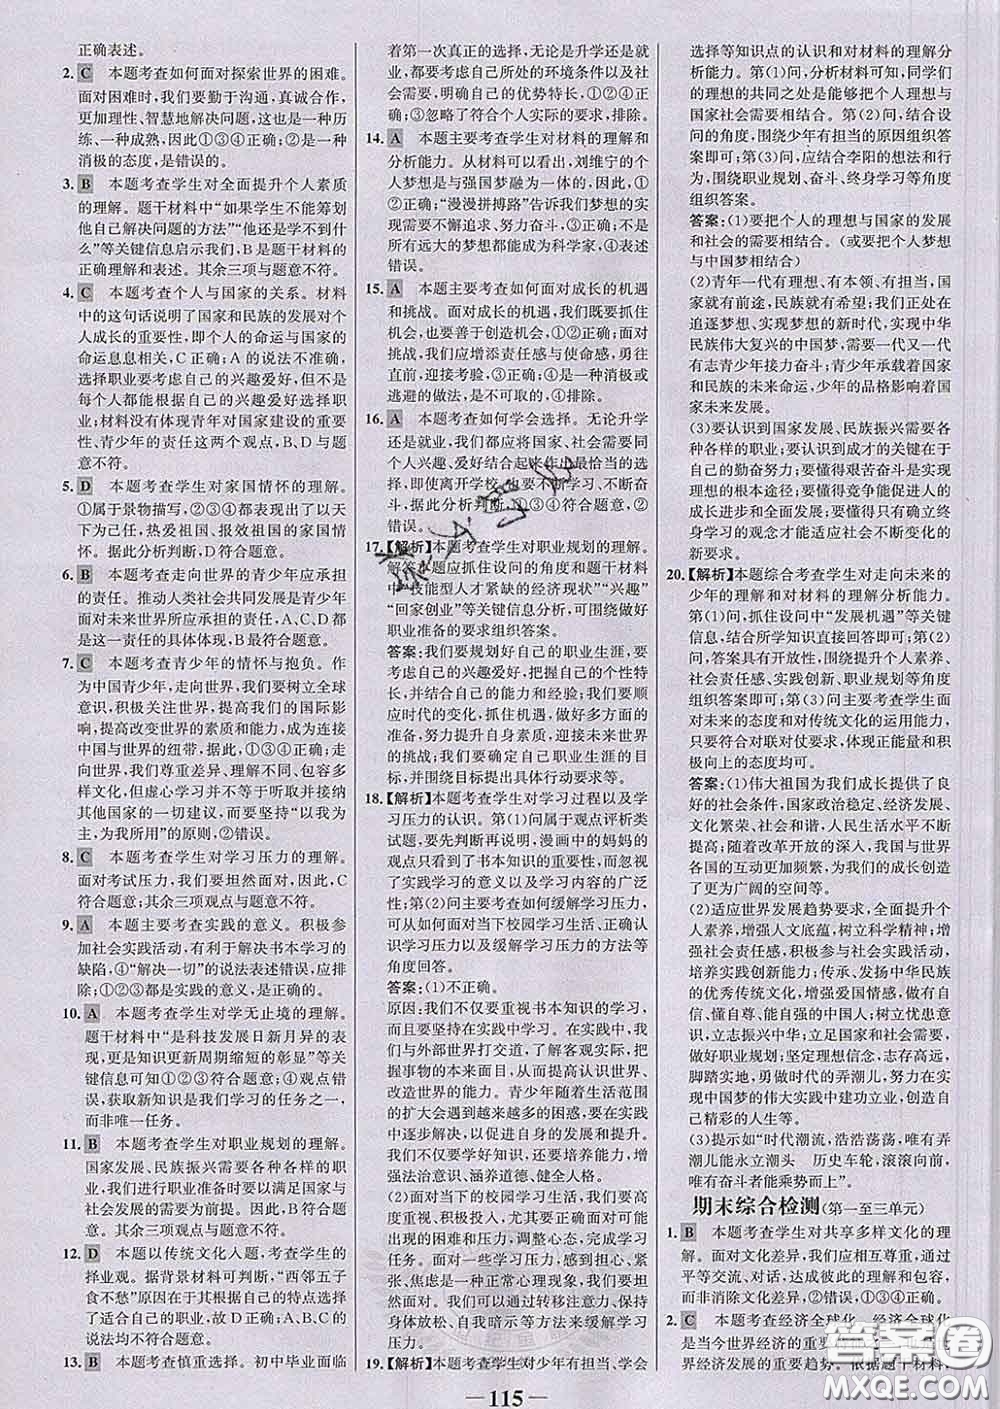 正确表述。
2. C 本题考查如何面对探索世界的困难。
面对困难时,我们要勤于沟通,真诚合作,
更加理性、智慧地解决问题,这也是一种历
练、一种成熟,因此①③④正确;②是一种
消极的态度,是错误的。
3. B 本题考查学生对全面提升个人素质
的理解。题干材料中“如果学生不能筹划
他自己解决问题的方法”“他还是学不到什
么”等关键信息启示我们,B是题干材料的
正确理解和表述。其余三项与题意不符。
4. C 本题考查个人与国家的关系。材料
中的这句话说明了国家和民族的发展对个
人成长的重要性,即个人的命运与国家的
命运息息相关,C正确;A的说法不准确,
选择职业要考虑自己的兴趣爱好,但不是
每个人都能根据自己的兴趣爱好选择到职
业;材料没有体现青年对国家建设的重要
性、青少年的责任这两个观点,B、D与题
意不符。
5. D 本题考查学生对家国情怀的理解。
①属于景物描写,②③④都表现出了以天
下为己任,热爱祖国、报效祖国的家国情
怀。据此分析判断,D符合题意。
6. B 本题考查走向世界的青少年应承担
的责任。推动人类社会共同发展是青少年
面对未来世界所应承担的责任,A、C、D都
是这一责任的具体体现,B最符合题意。
7. C 本题考查青少年的情怀与抱负。作
为中国青少年,走向世界,我们要树立全球
意识,积极关注世界,提高我们的国际影
响,提高改变世界的素质和能力,成为连接
中国与世界的纽带。据此,①③④正确;走
向世界,我们尊重差异、理解不同、包容多
样文化,但虚心学习并不等于听取并接纳
其他国家的一切建议,而要坚持“以我为
主,为我所用”的原则,②错误。
8. C 本题考查学生对学习压力的理解。
面对考试压力,我们要坦然面对,因此,C
正确;其余三项观点与题意不符。
9. A 本题主要考查实践的意义。积极参
加社会实践活动,有利于解决书本学习的
缺陷,④“解决一切”的说法表述错误,应排
除;①②③都是实践的意义,是正确的。
10. A 本题考查学生对学无止境的理解。
题干材料中“是科技发展日新月异的表
现,更是知识更新周期缩短的彰显”等关
键信息可知①②③符合题意;④观点错
误,获取新知识是我们学习的任务之一,
而非唯一任务。
11. B 本题考查学生对职业规划的理解。
国家发展、民族振兴需要各种各样的职
业,我们进行职业准备时要以满足国家与
社会的需要为前提。因此,B符合题意。
其余三项观点与题意不符。
12. D 本题以传统文化入题,考查学生的
择业观。据背景材料可判断,“西邻五子
食不愁”原因在于根据自己的特点选择了
适合自己的职业,故D正确;A、B、C的
说法均不符合题意。
13. B 本题考查慎重选择。初中毕业面临
着第一次真正的选择,无论是升学还是就
业,都要考虑自己所处的环境条件以及社
会需要,明确自己的优势特长,①②④正
确;③忽略了符合个人实际的要求,排除。
14. A 本题主要考查学生对材料的理解和
分析能力。从材料可以看出,刘维宁的个
人梦想是与强国梦融为一体的,因此,①
②正确;“漫漫拼搏路”告诉我们实现梦想
需要不懈追求、努力奋斗,③正确;不是
所有远大的梦想都能成为科学家,④表述
错误。
15. A 本题主要考查如何面对成长的机遇
和挑战。面对成长的机遇,我们既要抓住
机会,也要善于创造机会,①②正确;面对
挑战,我们应增添责任感与使命感,勇往
直前,迎接考验,③正确;④是一种消极或
逃避的做法,是不可取的,④排除。
16. A 本题考查如何学会选择。无论升学
还是就业,我们都应将国家、社会需要同
个人兴趣、爱好结合起来作出最恰当的选
择,即使离开学校,也要不断学习、不断奋
斗,据此分析判断,①③④符合题意,②
错误。
17.【解析】本题考查学生对职业规划的理解。
解答本题应抓住设问的角度和题干材料
中“技能型人才紧缺的经济现状”“兴趣”
“回家创业”等关键信息分析,可围绕做好
职业准备的要求组织答案。
答案:我们要规划好自己的职业生涯,要考
虑自己的兴趣爱好,把握自己的个性特长,
并结合自己的能力和经验;我们要顺
应时代的变化,抓住机遇,做好多方面的
准备,努力提升自身素质,迎接未来世界
的挑战;我们要确定自己职业生涯的目标,
并围绕目标提出具体行动要求等。
18.【解析】本题考查学生对学习过程以及学
习压力的认识。第(1)问属于观点评析类
试题,要先判断再说明,漫画中的妈妈的
观点只看到了书本知识的重要性,而忽视
了实践学习的意义以及学习内容的广泛
性;第(2)问主要考查如何缓解学习压力,
可从如何面对当下校园学习生活、正确认
识学习压力以及缓解学习压力的方法等
角度回答。
答案:(1)不正确。
原因:我们不仅要重视书本知识的学习,
而且要坚持在实践中学习。在实践中,我
们与外部世界打交道,了解客观实际,把
握事物的本来面目,从而提高认识世界、
改造世界的能力。青少年随着生活范围
的扩大会遇到越来越多的问题,也需要在
学习中探究,以促进自身的发展和提高。
我们不仅要学习科学知识,还要培养能力,
增强法治意识、涵养道德、健全人格。
(2)面对当下的校园学习生活,我们要高
度重视、积极投入,尤其要正确对待可能
出现的困难和压力,调整心态,积极应对;
面对人生中一些重要的考试,出现担心、紧
张、焦虑是一种正常心理现象,我们要坦
然面对;我们可以通过转移注意力、保持
身体放松、自我暗示等方式调节情绪、缓
解压力。
19.【解析】本题考查学生对少年有担当、学会
选择等知识点的认识和对材料的理解分
析能力。第(1)问,分析材料可知,同学们
的理想的共同之处是要把个人的理想与
国家和社会的需要相结合;第(2)问,抓住
设问的角度,围绕少年有担当的原因组织
答案即可;第(3)问,应结合李阳的想法和行
为,围绕职业规划、奋斗、终身学习等角度
组织答案。
答案:(1)要把个人的理想与国家的发展
和社会的需要相结合。(或要把个人梦想
与中国梦相结合)
(2)青年一代有理想、有本领、有担当,国
家就有前途,民族就有希望;我们正处在
追逐梦想、实现梦想的新时代,实现中华
民族伟大复兴的中国梦,需要一代又一代
有志青年接力奋斗、青少年承载着国家
和民族的未来命运,少年的品格影响着国
家未来发展。
(3)要认识到国家发展、民族振兴需要各
种各样的职业;要认识到成才的关键在于
自己的勤奋努力;要懂得艰苦奋斗是实现
理想的根本途径;要懂得竞争能促进人的
成长进步和全面发展;要懂得只有确立终
身学习的观念才能适应社会不断变化的
新要求。
20.【解析】本题综合考查学生对走向未来的
少年的理解和对材料的理解分析能力。第
(1)问,抓住设问中“发展机遇”等关键
信息,结合所学知识直接回答即可;第(2)
问,答案具有开放性,围绕提升个人素养、
社会责任感、实践创新、职业规划等角度
组织答案即可;第(3)问主要考查学生面
对未来的态度和对传统文化的运用能力,
只要符合对联对仗要求,体现正能量和积
极向上的态度均可。
答案:(1)伟大祖国为我们成长提供了良
好的社会条件,国家政治稳定、经济发展、
文化繁荣、社会和谐,人民生活水平不断
提高;随着改革开放的深入,我国与世界
各国的互动更加频繁,为我们的成长创造
了更为广阔的空间等。
(2)适应世界发展趋势要求,全面提升个
人素养,增强人文底蕴,树立科学精神;增
强社会责任感,积极参与社会实践活动,
培养实践创新能力;传承、发扬中华民族
的优秀传统文化,增强爱国情感,做有自
信、懂自尊、能自强的中国人;树立忧患意
识,立志振兴中华;立足国家和社会需要,
做好职业规划;坚定理想信念,志存高远,
脚踏实地,勇做时代的弄潮儿,努力在实
现中国梦的伟大实践中建功立业,创造自
己精彩的人生等。
(3)提示如“时代潮流,浩浩荡荡,唯有弄
潮儿能永立潮头 历史车轮,滚滚向前,
唯有奋斗者能乘势而上”。
期末综合检测(第一至三单元)
1. B 本题考查学生对共享多样文化的理
解。面对文化差异,我们应相互尊重,通过
平等交流、对话,达成彼此的理解和包容,
而非消除文化差异,②错误,①③④正确。
2. C 本题考查经济全球化。经济全球化
是当今世界经济的重要特征,也是世
界经济发展的重要趋势。依据题干材料,
— 115 —
答案圈
MXQE.COM